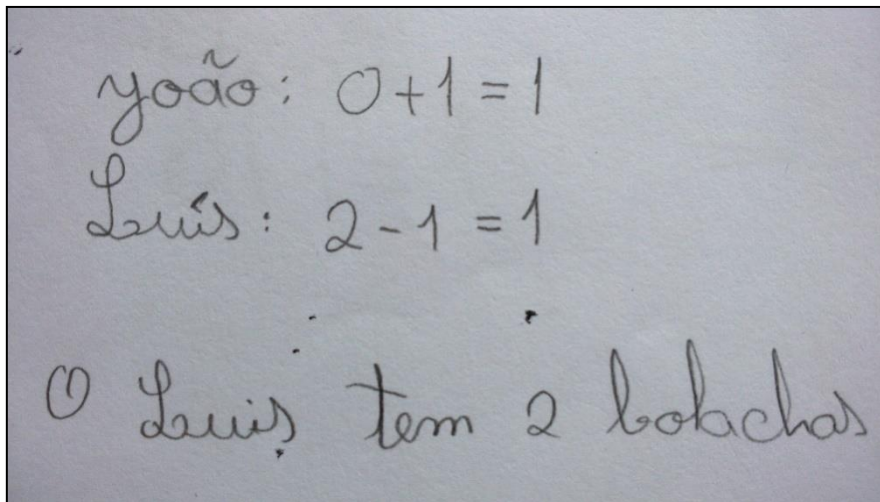 João: 0+1=1
Luís: 2-1=1
O Luis tem 2 bolachas